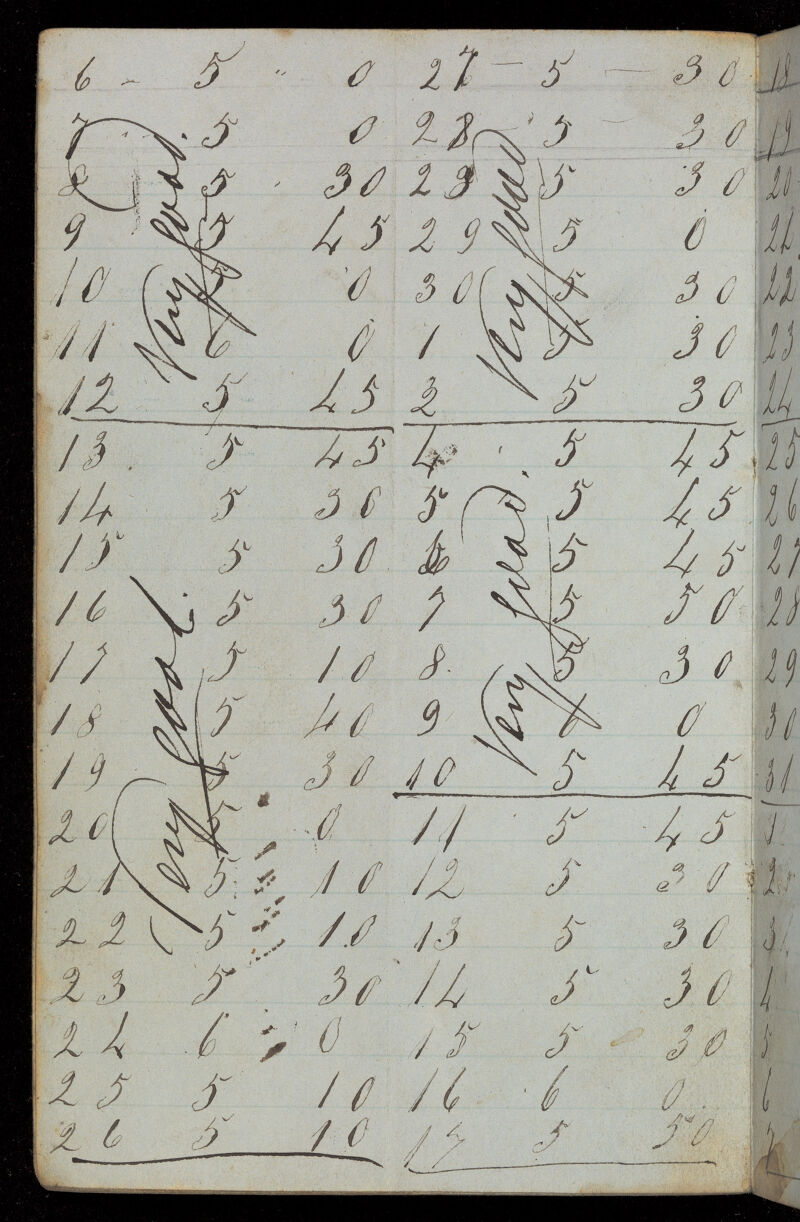 6 - 5 " 0
7 5 0
8 5 30
9 5 45
10 5 0
11 6 0
12 5 45
Very good.
13 5 45
14 5 30
15 5 30
16 5 30
17 5 10
18 5 40
19 5 30
20 5 0
21 5 10
22 5 10
23 5 30
24 6 0
25 5 10
26 5 10
Very good.
27 - 5 - 30
28 5 30
28 5 30
29 5 0
30 5 30
1 5 30
2 5 30
Very good
4 5 45
5 5 45
6 5 45
7 5 50
8 5 30
9 6 0
10 5 45
Very good.
11 5 45
12 5 30
13 5 30
14 5 30
15 5 30
16 6 0
17 5 50
18
19
20
21
22
23
24
25
26
27
28
29
30
31
1
2
3
4
5
6
7